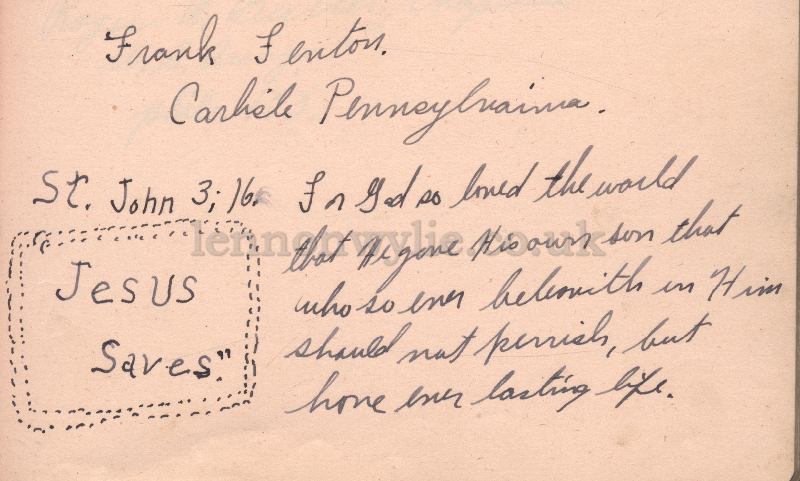 Frank Fenton.
Carlisle Pennsylvaima.
St. John 3; 16.
For God so loved the world
that He gave His own son that
who so ever beleovith in Him
should not perrish, but
have ever lasting life.
Jesus
Saves."
lennonwylie.co.uk